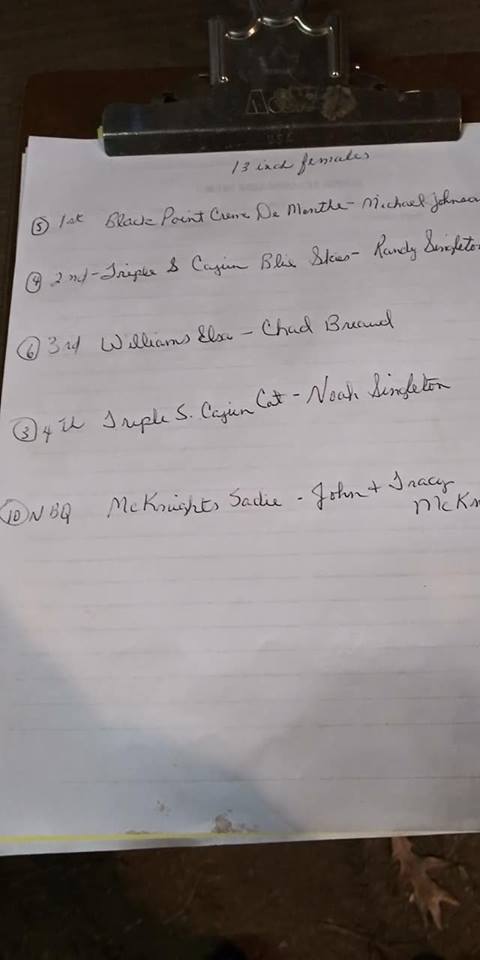 13 inch females
5 1st Black Point Creme De Menthe - Michael Johnson
4 2nd - Triple S Cajun Blue Skies - Randy Singleton
6 3rd Williams Elsa - Chad Breaud
3 4th Triple S. Cajun Cat - Noah Singleton
10 NBQ McKnights Sadie - John + Tracy
McKn